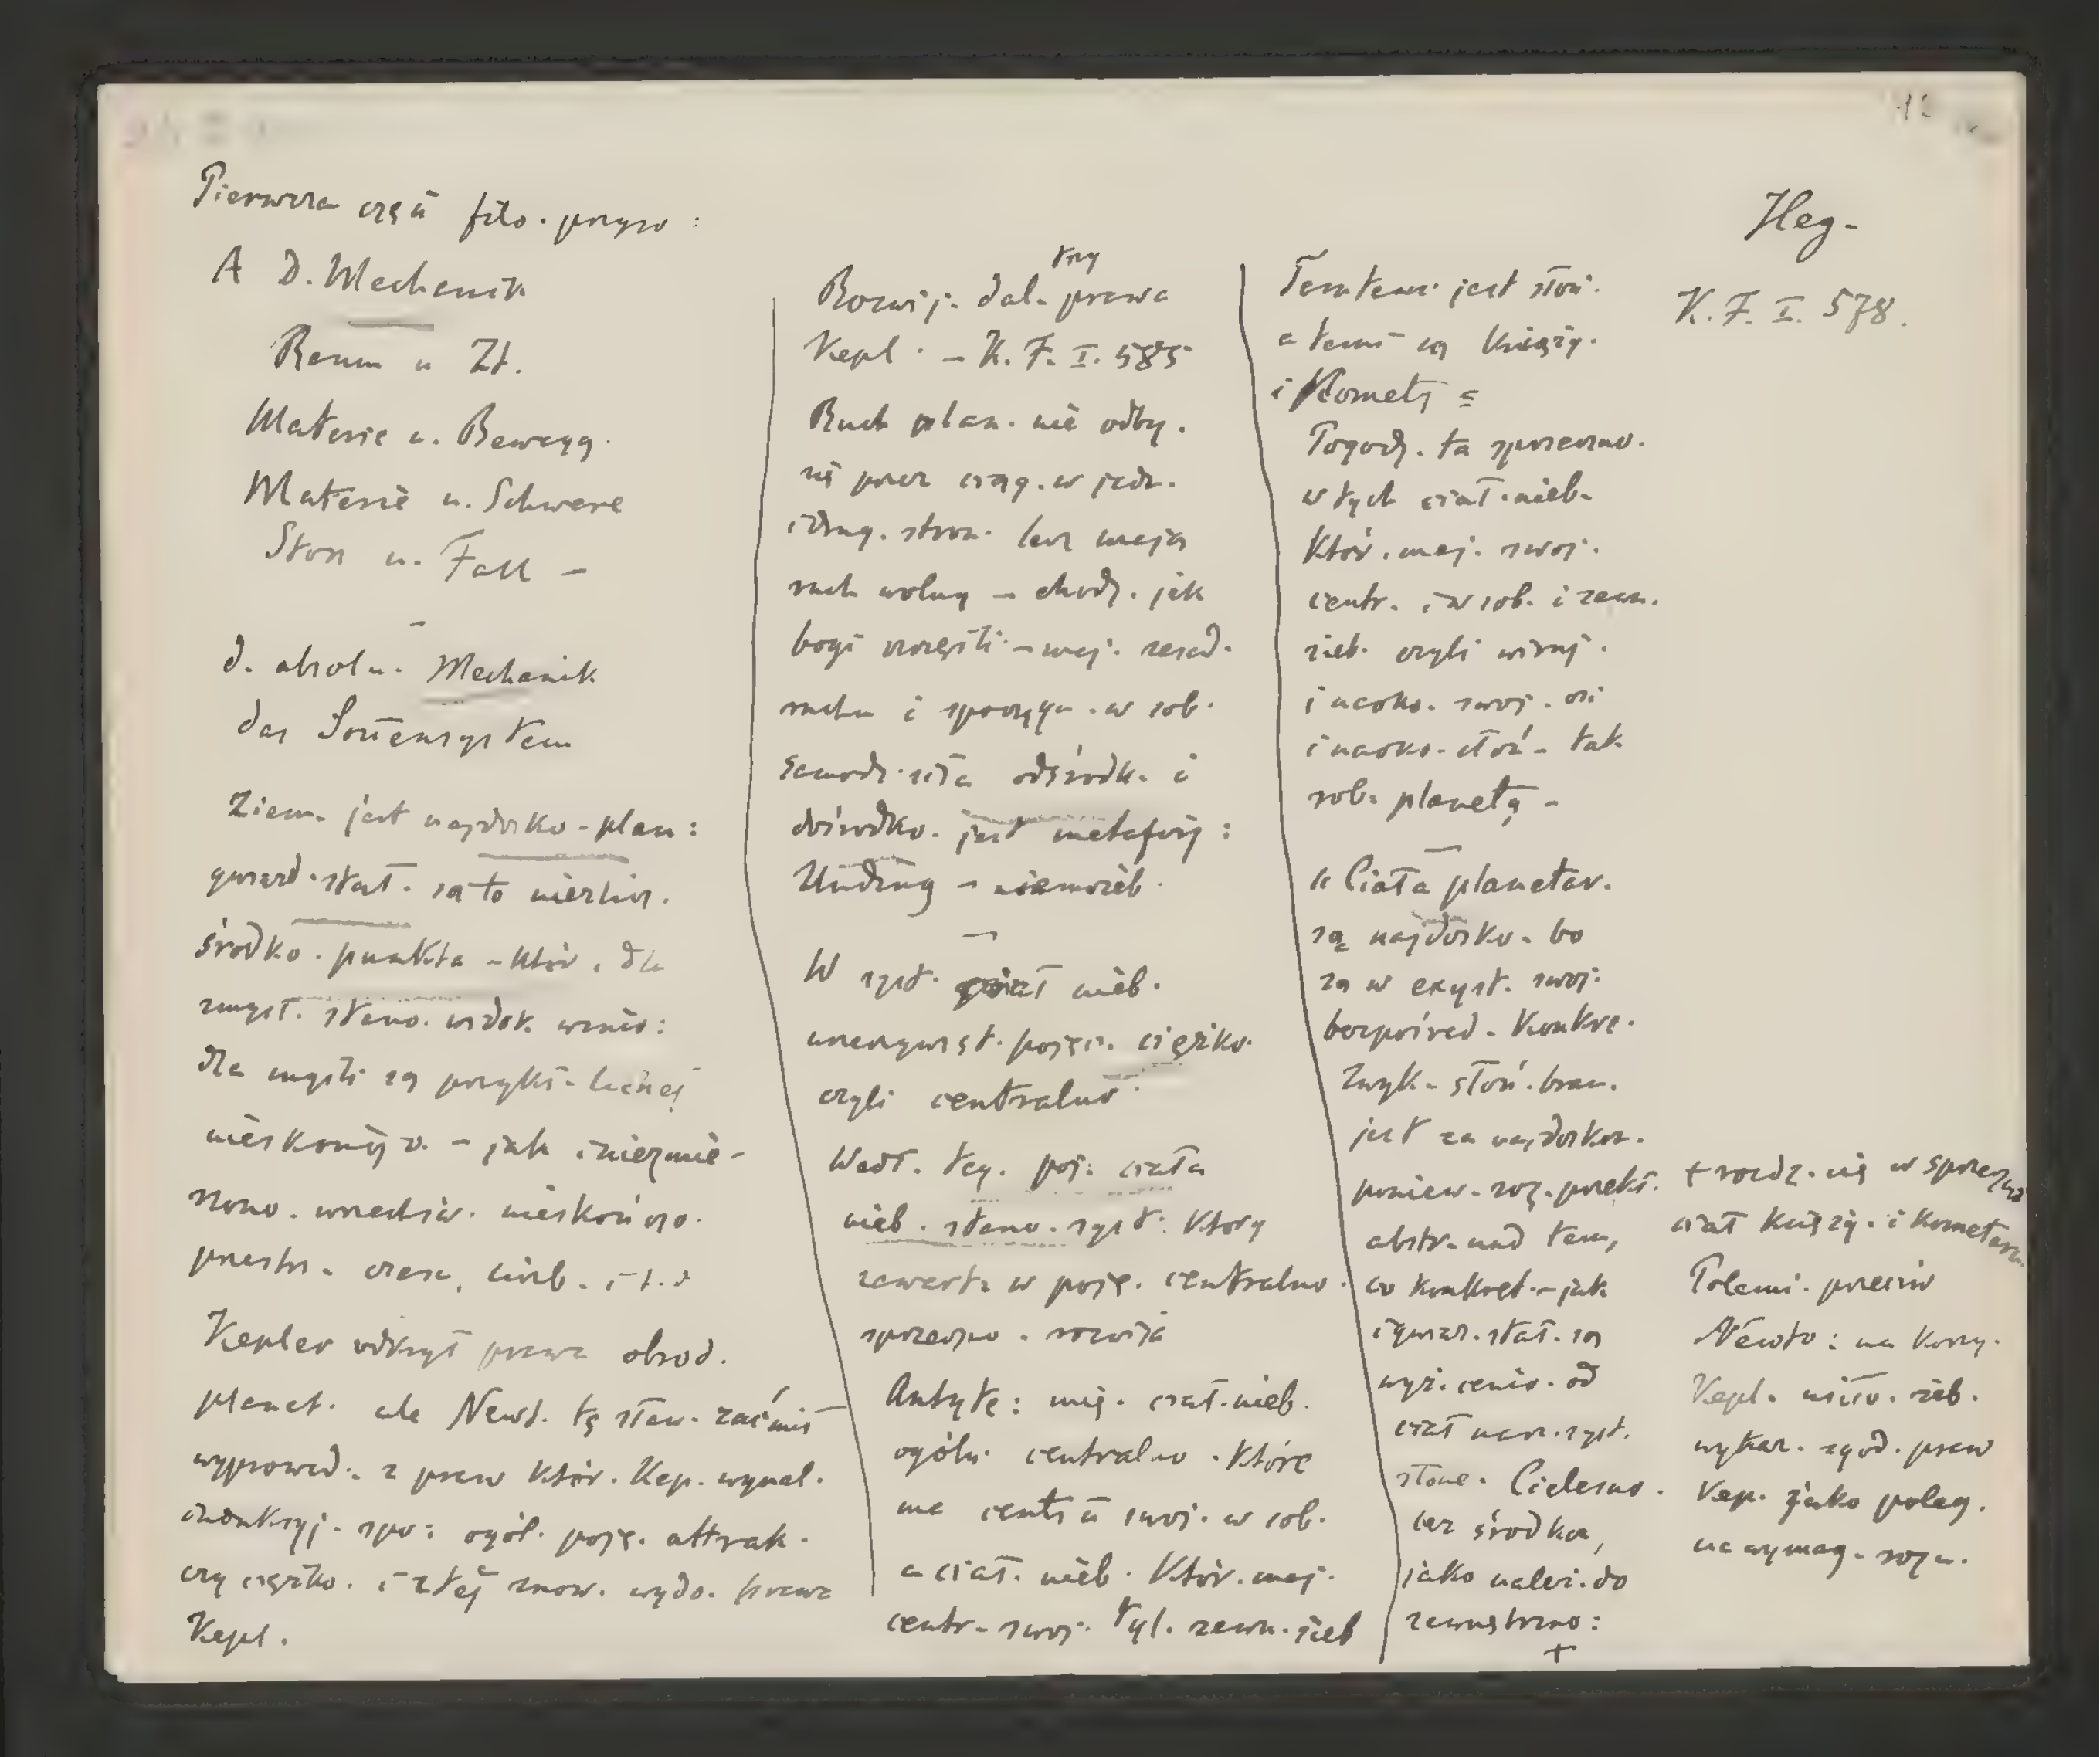 Pierwsza część filo. przyro:
A D. Mechanik
Raum u Zt.
Materie u. Bewegg.
Materie u. Schwere
Stoss u. Fall –
d. absolu. Mechanik
das Sonensystem
Ziem. jest najdosko. plan:
gwiazd. stał. są to niezlicz.
środko. punkta – któr. dla
zmysł. stano. widok. wznio:
dla myśli są przykł. lichej
nieskończo. – jak i niezmie-
rzono. wszechśw. nieskończo.
przestrz. czasu, liczb. i t. d
Kepler odkrył prawa obrod.
planet. ale Newt. tę sław. zaćmił
wyprowad. z praw któr. Kep. wynal.
indukcyj. spo: ogól. poję. attrak.
czy ciężko. i z tej znow. wydo. prawa
Kepl.
trzy
Rozwij. dal. prawa
Kepl. – K. F. I. 585
Ruch plan. nie odby.
się przez ciąg. w jedn.
i drug. stron. lecz mają
ruch wolny – chodz. jak
bogi szczęśli. – maj. zasad.
ruchu i spoczyn. w sob.
Samodz. siła odśrodk. i
dośrodko. jest metafizy:
Unding – niemożeb.
W syst. ciał nieb.
urzeczywist. pojęci. ciężko.
czyli centralno
Wedł. teg. poj. ciała
nieb. stano. syst. który
zawart. w poję. centralno.
sprzeczno. rozwija
Antytę: mię. ciał. nieb.
ogóln. centralno. które
ma centr ū swoj. w sob.
a ciał. nieb. któr. maj.
centr. swoj. tyl. zewn. sieb
Tamtem jest słoń.
a temi są księży.
i Komety =
Pogodz. ta sprzeczno.
w tych ciał. nieb.
któr. maj. swoj.
centr. i w sob. i zewn.
sieb. czyli wiruj.
i naoko. swoj. osi
i naoko. słoń. – tak
rob. planetą –
" Ciała planetar.
są najdosko. bo
są w exyst. swoj.
bezpośred. konkre.
Zwyk. słoń. bran.
jest za najdoskon.
poniew. roz. przekł.
abstr. nad tem,
co konkret. – jak
i gwiaz. stał. są
wyż. cenio. od
ciał nasz. syst.
słone. Cielesno.
bez środka,
jako należ. do
zewnętrzno:
+
Heg-
K. F. I. 578.
+ rozdz. się w sprzeczno
ciał księży. i kometarn.
Polemi. przeciw
Newto: na korzy.
Kepl. usiło. zeb.
wykaz. zgod. praw
Kep. jako poleg.
na wymag. rozu.